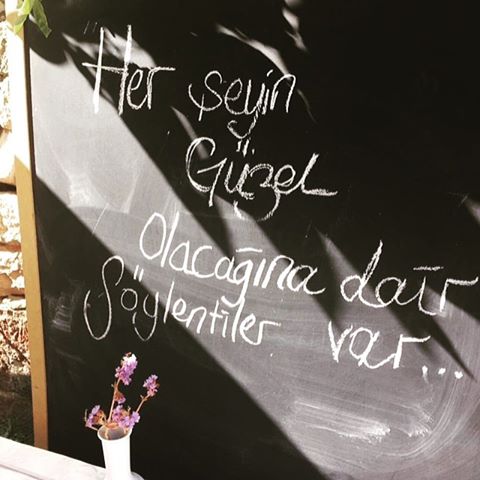 "Her şeyin
Güzel
Olacağına dair
Söylentiler var...